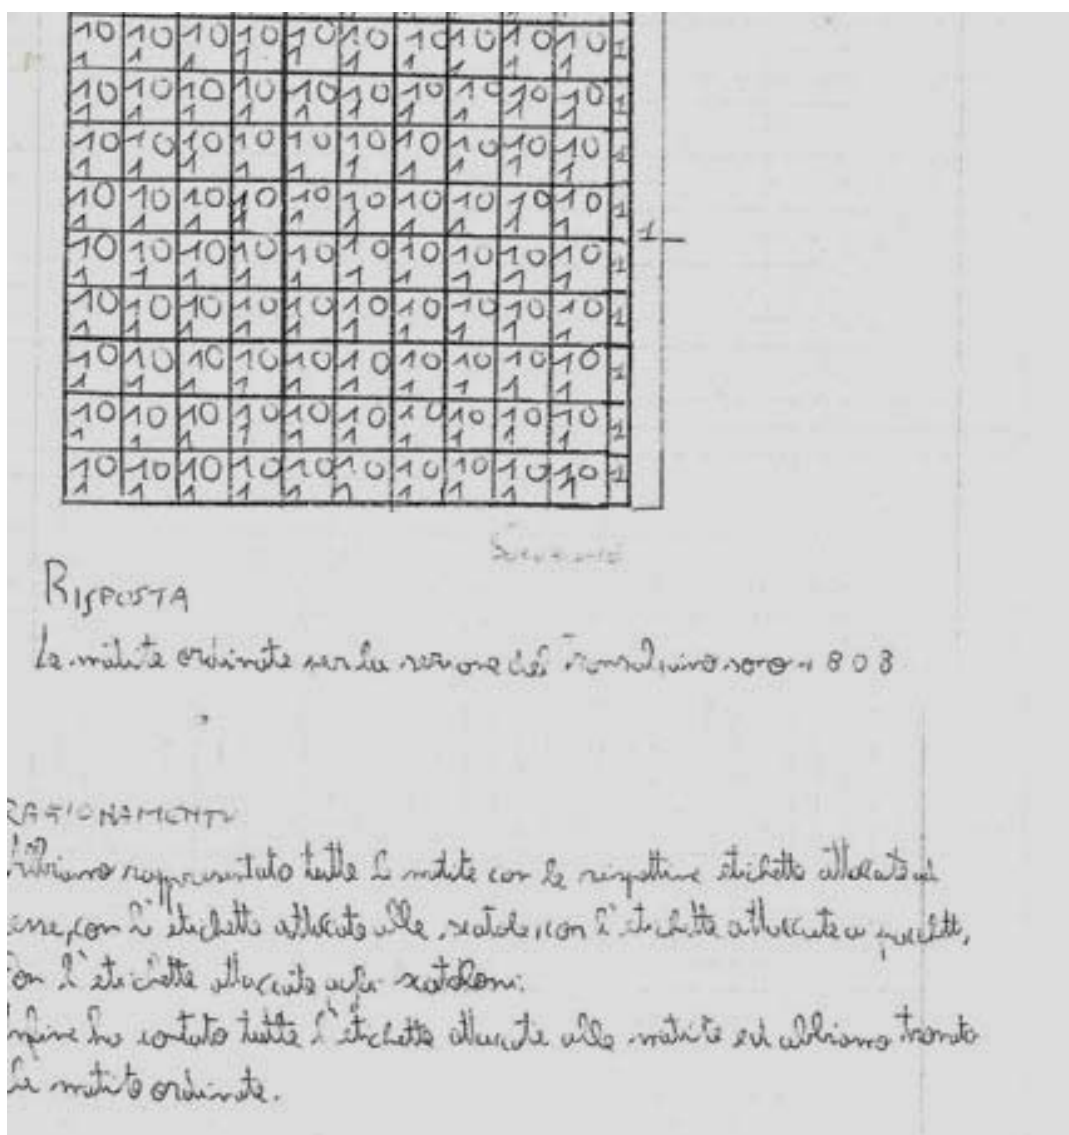 10 10 10 10 10 10 10 10 10 10 1
1 1 1 1 1 1 1 1 1 1
10 10 10 10 10 10 10 10 10 10 1
1 1 1 1 1 1 1 1 1 1
10 10 10 10 10 10 10 10 10 10 1
1 1 1 1 1 1 1 1 1 1
10 10 10 10 10 10 10 10 10 10 1
1 1 1 1 1 1 1 1 1 1
1
10 10 10 10 10 10 10 10 10 10 1
1 1 1 1 1 1 1 1 1 1
10 10 10 10 10 10 10 10 10 10 1
1 1 1 1 1 1 1 1 1 1
10 10 10 10 10 10 10 10 10 10 1
1 1 1 1 1 1 1 1 1 1
10 10 10 10 10 10 10 10 10 10 1
1 1 1 1 1 1 1 1 1 1
10 10 10 10 10 10 10 10 10 10 1
1 1 1 1 1 1 1 1 1 1
RISPOSTA
Le matite ordinate per la sono 1808
RAGIONAMENTO
Abbiamo rappresentato tutte le matite con le rispettive etichette attaccate ad
esse, con l'etichette attaccate alle scatole, con l'etichette attaccate ai pacchetti,
con l'etichette attaccate scatoloni.
Infine ho contato tutte l'etichette attaccate alle matite ed abbiamo trovato
le matite ordinate.